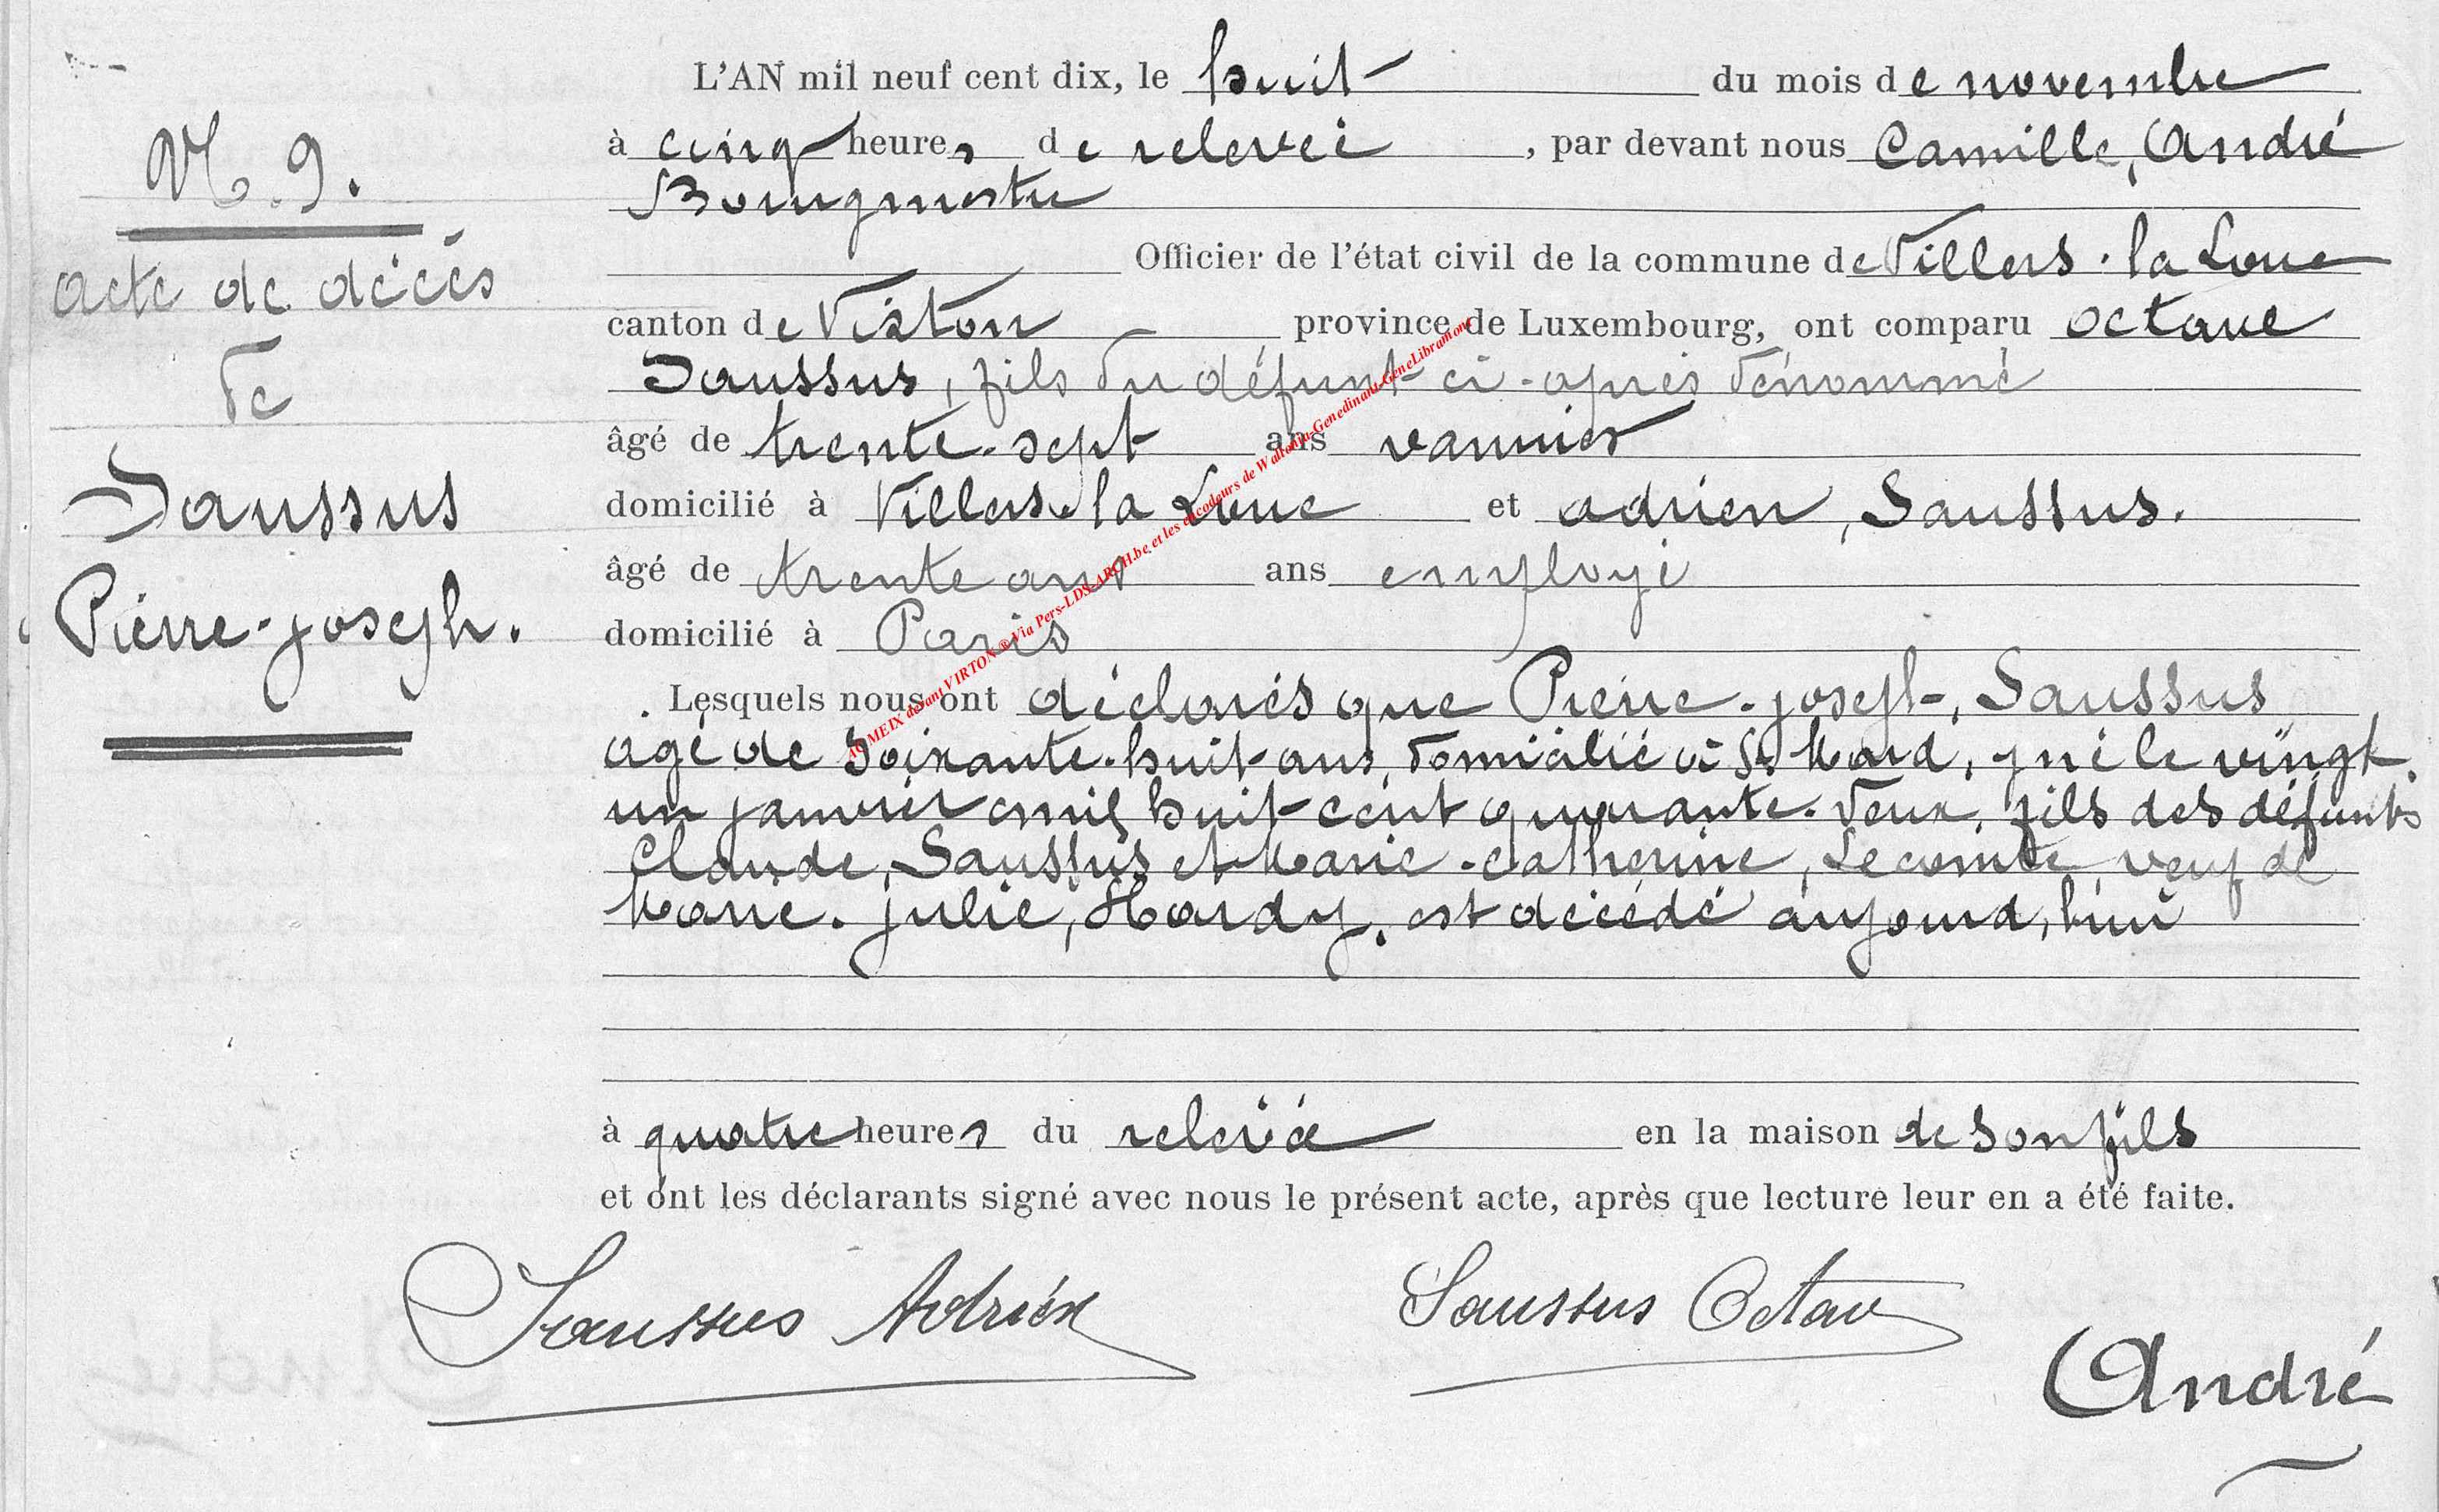 N° 9.
acte de décès
de
Saussus
Pierre-joseph.
L'AN mil neuf cent dix, le huit du mois de novembre
à cinq heures de relevée , par devant nous Camille, André
Bourgmestre
Officier de l'état civil de la commune de Villers-la Loue
canton de Virton - province de Luxembourg, ont comparu octave
Saussus, fils du défunt ci-après dénommé
âgé de trente-sept ans vannier
domicilié à Villers-la Loue et adrien, Saussus.
âgé de trente ans ans employé
domicilié à Paris
Lesquels nous ont déclarés que Pierre-joseph, Saussus
agé de soixante-huit ans, domicilié à St Mard, y né le vingt
un janvier mil huit cent quarante-deux, fils des défunts
Claude, Saussus et Marie-catherine, Lecomte, veuf de
Marie-julie, Hardy, est décédé aujourd,hui
à quatre heures du relevée en la maison de son fils
et ont les déclarants signé avec nous le présent acte, après que lecture leur en a été faite.
Saussus Adrien
Saussus Octave
André
AC MEIX devant VIRTON ® Via Pers-LDS-ARCH.be et les encodeurs de Wallonia-Genedinant-GeneLibramont